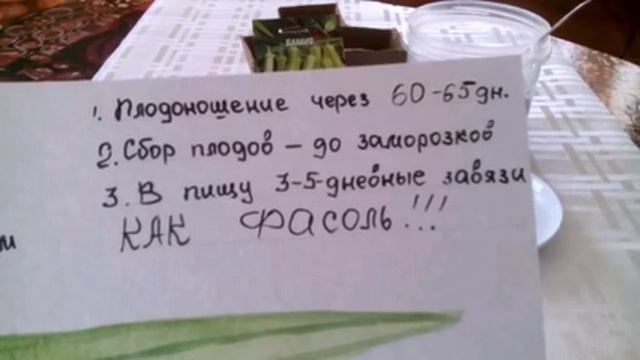 БАМИЯ
1. Плодоношение через 60-65 дн.
2. Сбор плодов – до заморозков
3. В пищу 3-5-дневные завязи
КАК ФАСОЛЬ!!!